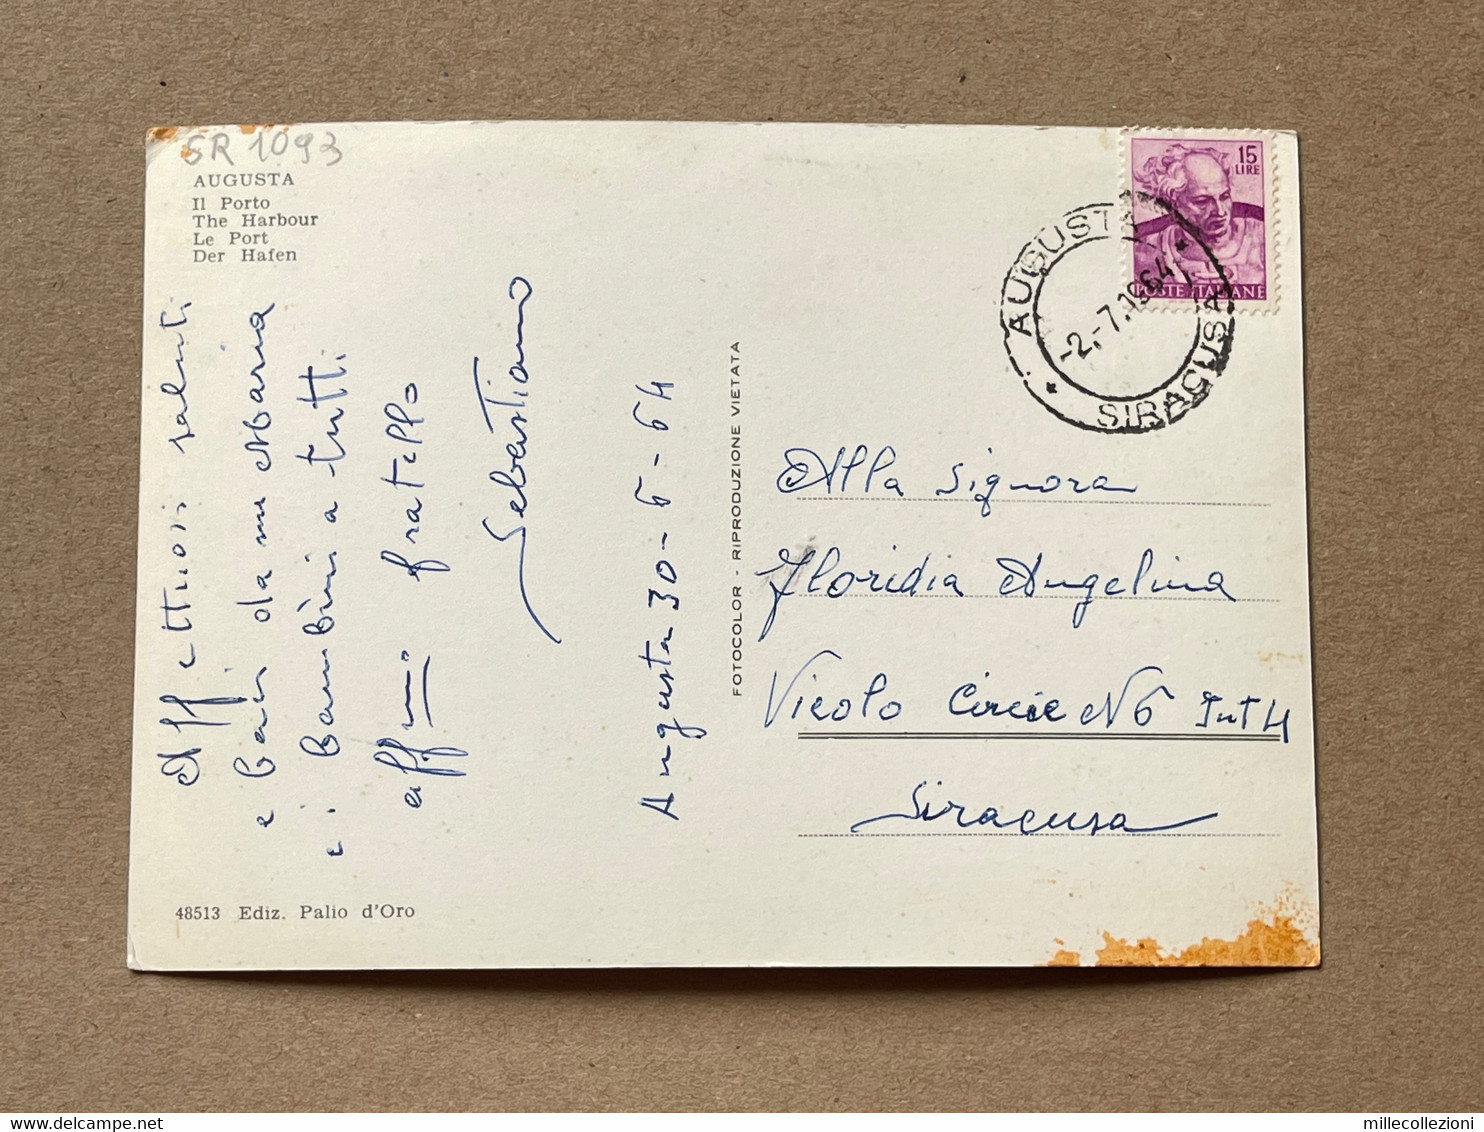 SR 1093
AUGUSTA
Il Porto
The Harbour
Le Port
Der Hafen
Affettuosi saluti
e baci da me Maria
e i bambini a tutti
affmo fratello
Sebastiano
Augusta 30-6-64
48513 Ediz. Palio d'Oro
FOTOCOLOR - RIPRODUZIONE VIETATA
15
LIRE
POSTE ITALIANE
AUGUSTA
-2.-7.1964
SIRACUSA
Alla Signora
Floridia Angelina
Vicolo N 6 Int 4
Siracusa
millecollezioni